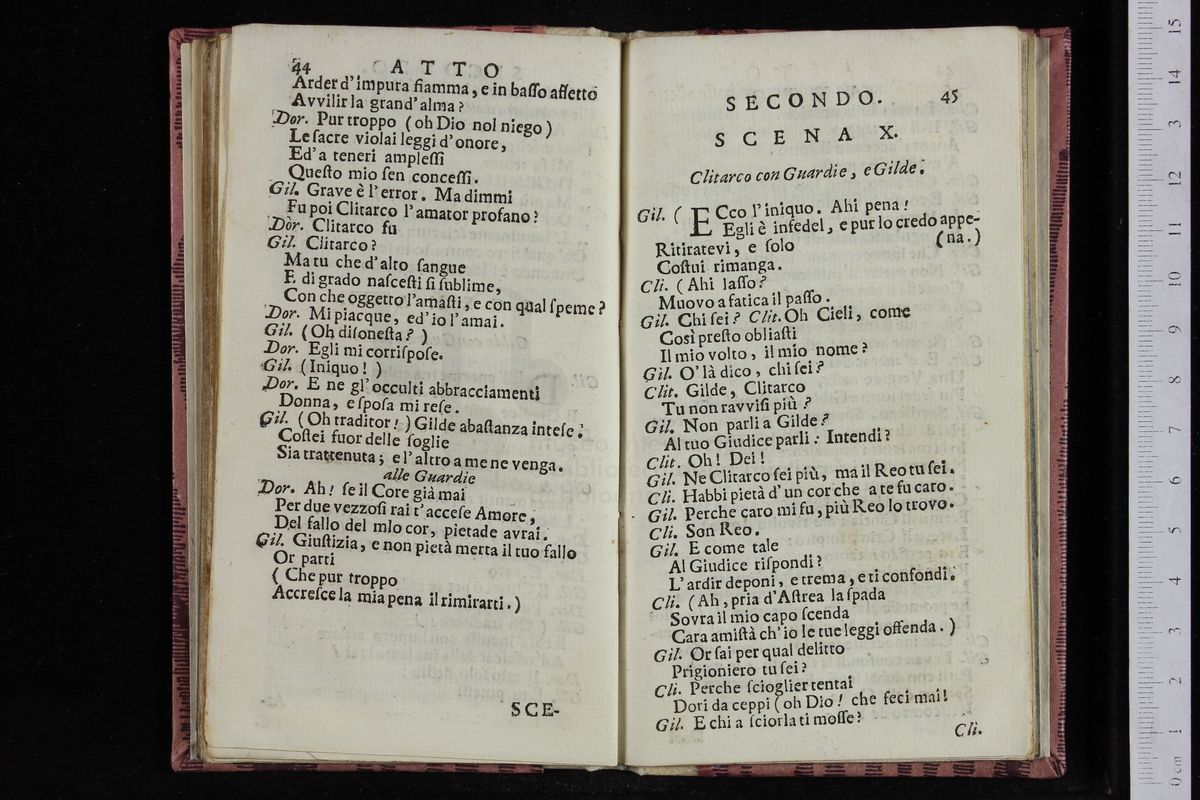 44 ATTO
Arder d'impura fiamma, e in baſſo affetto
Avvilir la grand'alma?
Dor. Pur troppo (oh Dio nol niego)
Le ſacre violai leggi d'onore,
Ed'a teneri ampleſſi
Queſto mio ſen conceſſi.
Gil. Grave è l'error. Ma dimmi
Fu poi Clitarco l'amator profano?
Dor. Clitarco fu
Gil. Clitarco?
Ma tu che d'alto ſangue
E di grado naſceſti ſi ſublime,
Con che oggetto l'amaſti, e con qual ſpeme?
Dor. Mi piacque, ed'io l'amai.
Gil. (Oh diſoneſta?)
Dor. Egli mi corriſpoſe.
Gil. (Iniquo!)
Dor. E ne gl'occulti abbracciamenti
Donna, e ſpoſa mi reſe.
Gil. (Oh traditor!) Gilde abaſtanza inteſe.
Coſtei fuor delle ſoglie
Sia trattenuta; e l'altro a me ne venga.
alle Guardie
Dor. Ah! ſe il Core già mai
Per due vezzoſi rai t'acceſe Amore,
Del fallo del mIo cor, pietade avrai.
Gil. Giuſtizia, e non pietà merta il tuo fallo
Or parti
(Che pur troppo
Accreſce la mia pena il rimirarti.)
SCE-
SECONDO. 45
SCENA X.
Clitarco con Guardie, e Gilde.
Gil. (ECco l'iniquo. Ahi pena!
Egli è infedel, e pur lo credo appe-
Ritiratevi, e ſolo (na.)
Coſtui rimanga.
Cli. (Ahi laſſo?
Muovo a fatica il paſſo.
Gil. Chi ſei? Clit. Oh Cieli, come
Così preſto obliaſti
Il mio volto, il mio nome?
Gil. O'là dico, chi ſei?
Clit. Gilde, Clitarco
Tu non ravviſi più?
Gil. Non parli a Gilde?
Al tuo Giudice parli: Intendi?
Clit. Oh! Dei!
Gil. Ne Clitarco ſei più, ma il Reo tu ſei.
Cli. Habbi pietà d'un cor che a te fu caro.
Gil. Perche caro mi fu, più Reo lo trovo.
Cli. Son Reo.
Gil. E come tale
Al Giudice riſpondi?
L'ardir deponi, e trema, e ti confondi.
Cli. (Ah, pria d'Aſtrea la ſpada
Sovra il mio capo ſcenda
Cara amiſtà ch'io le tue leggi offenda.)
Gil. Or ſai per qual delitto
Prigioniero tu ſei?
Cli. Perche ſcioglier tentai
Dori da ceppi (oh Dio! che feci mai!
Gil. E chi a ſciorla ti moſſe?
Cli.
15
14
13
12
11
10
9
8
7
6
5
4
3
2
1
0 cm